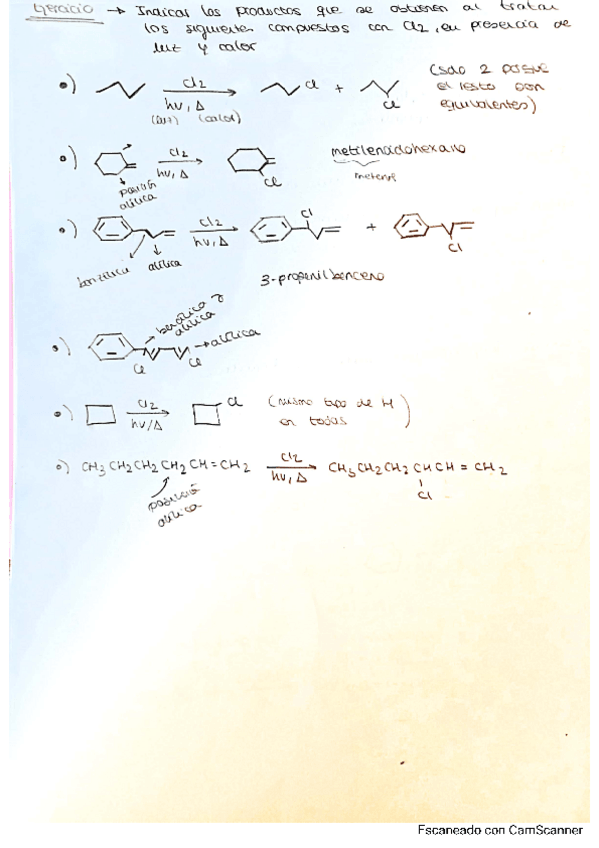 Ejercicio → Indicar los productos que se obtienen al tratar
los siguientes compuestos con Cl2, en presencia de
luz y calor
Cl2
hν, Δ
(luz) (calor)
Cl
+
Cl
(solo 2 porque
el resto son
equivalentes)
Cl2
hν, Δ
Cl
posición
alílica
metilenciclohexano
Cl2
hν, Δ
bencílica
alílica
Cl
+
Cl
3-propenilbenceno
bencílica y
alílica
→ alílica
Cl
Cl
Cl2
hν/Δ
Cl
(mismo tipo de H
en todas)
CH3CH2CH2CH2CH=CH2
Cl2
hν, Δ
CH3CH2CH2CHCH=CH2
Cl
posición
alílica
Escaneado con CamScanner